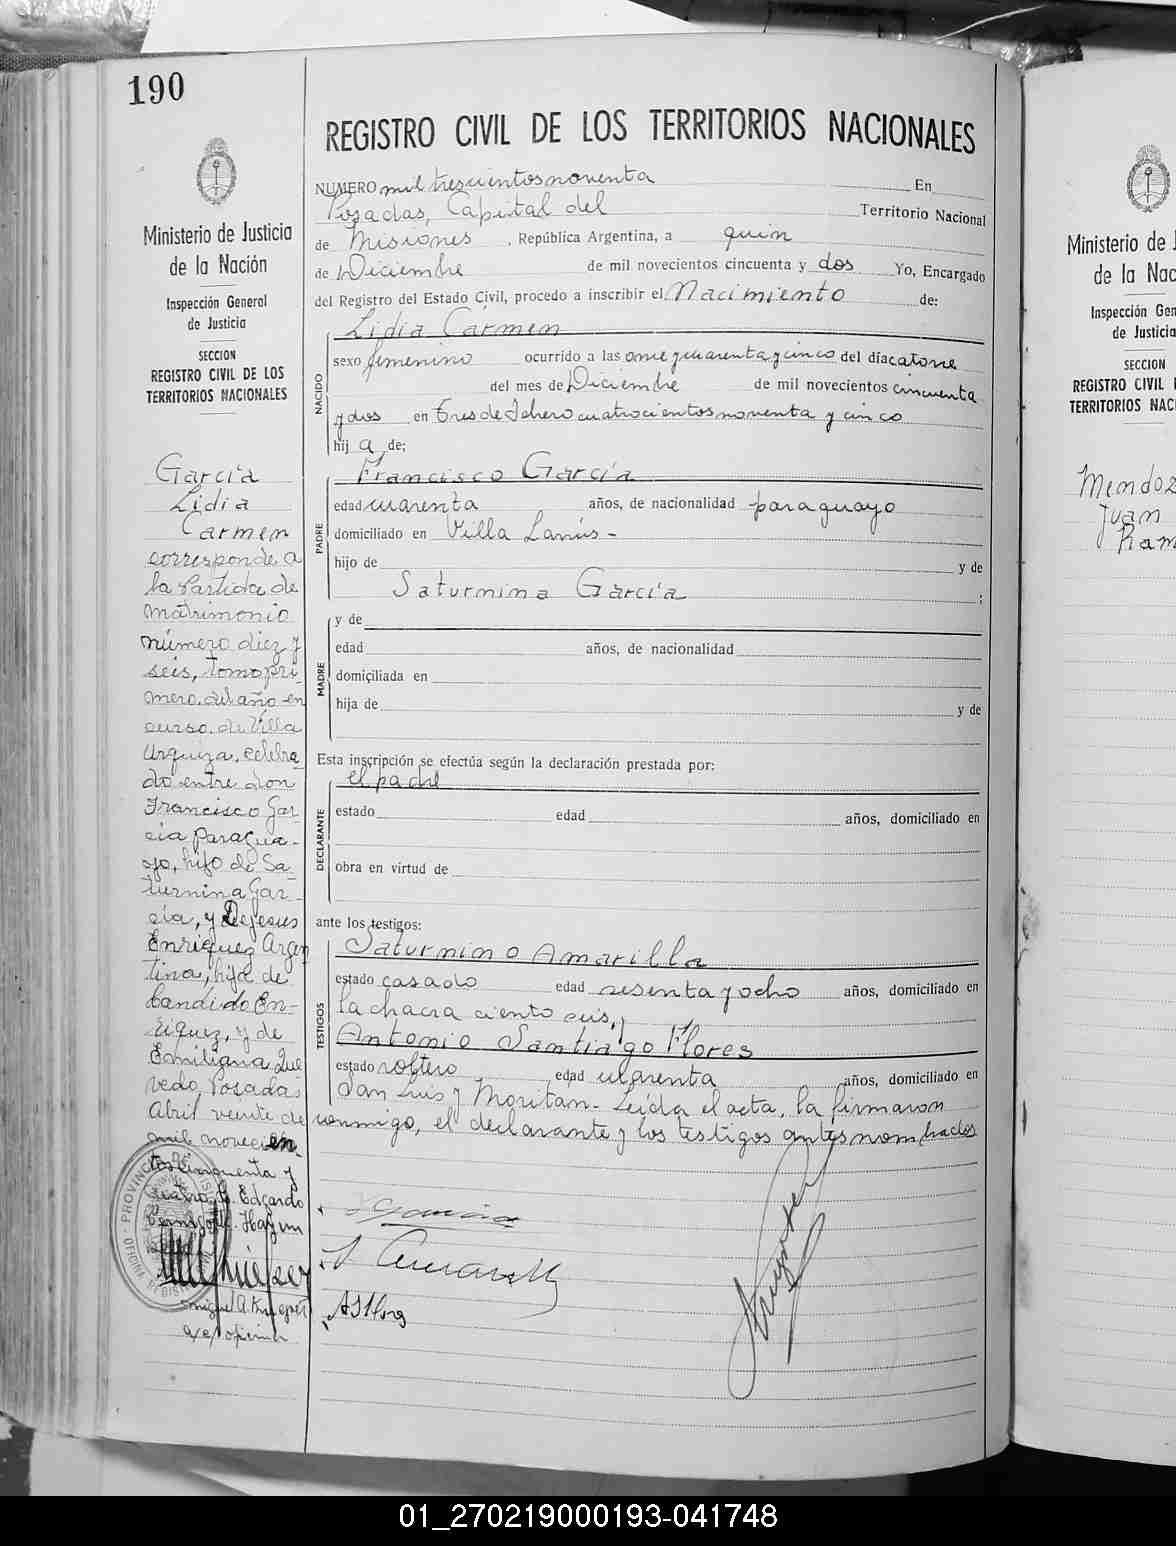 190
REGISTRO CIVIL DE LOS TERRITORIOS NACIONALES
Ministerio de Justicia
de la Nación
Inspección General
de Justicia
SECCION
REGISTRO CIVIL DE LOS
TERRITORIOS NACIONALES
García
Lidia
Carmen
corresponde a
la Partida de
Matrimonio
número diez y
seis, tomo pri-
mero, del año en
curso, de Villa
Urquiza, celebra-
do entre don
Francisco Gar-
cia paragua-
yo, hijo de Sa-
turnina Gar-
cia, y Dejesus
Enriquez Argen
tina, hija de
Candido En-
riquez, y de
Emiliana Que
vedo, Posadas
Abril veinte de
mil novecien
tos cinquenta y
cuatro. Edgardo
NUMERO mil trescientos noventa En
Posadas, Capital del Territorio Nacional
de Misiones, República Argentina, a quin
de Diciembre de mil novecientos cincuenta y dos Yo, Encargado
del Registro del Estado Civil, procedo a inscribir el Nacimiento de:
NACIDO
Lidia Carmen
sexo femenino ocurrido a las once y cuarenta y cinco del día catorce
del mes de Diciembre de mil novecientos cincuenta
y dos en Tres de Febrero cuatrocientos noventa y cinco
hij a de;
PADRE
Francisco García
edad cuarenta años, de nacionalidad paraguayo
domiciliado en Villa Lanús-
hijo de y de
Saturnina García ;
MADRE
y de
edad años, de nacionalidad
domiciliada en
hija de y de
Esta inscripción se efectúa según la declaración prestada por:
DECLARANTE
el padre
estado edad años, domiciliado en
obra en virtud de
ante los testigos:
TESTIGOS
Saturnino Amarilla
estado casado edad sesenta y ocho años, domiciliado en
la chacra ciento seis, y
Antonio Santiago Flores
estado soltero edad cuarenta años, domiciliado en
San Luis y Moritan- Leída el acta, la firmaron
conmigo, el declarante y los testigos antes nombrados
Ministerio de J
de la Nac
Inspección Gen
de Justicia
SECCION
REGISTRO CIVIL
TERRITORIOS NAC
Mendoz
Juan
Ram
01_270219000193-041748